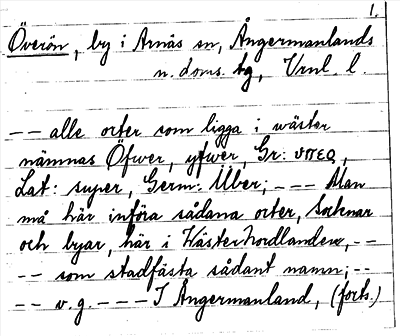 1.
Överön, by i Arnäs sn, Ångermanlands
n. doms. tg, Vrnl. l.
-- alle orter som ligga i wäster
nämnas Öfwer, yfwer, Gr: υπερ,
Lat: super, Germ: Über; --- Man
må här införa sådana orter, Socknar
och byar, här i WästerNordlanden, --
-- som stadfästa sådant namn; --
-- v.g. --- I Ångermanland, (forts.)